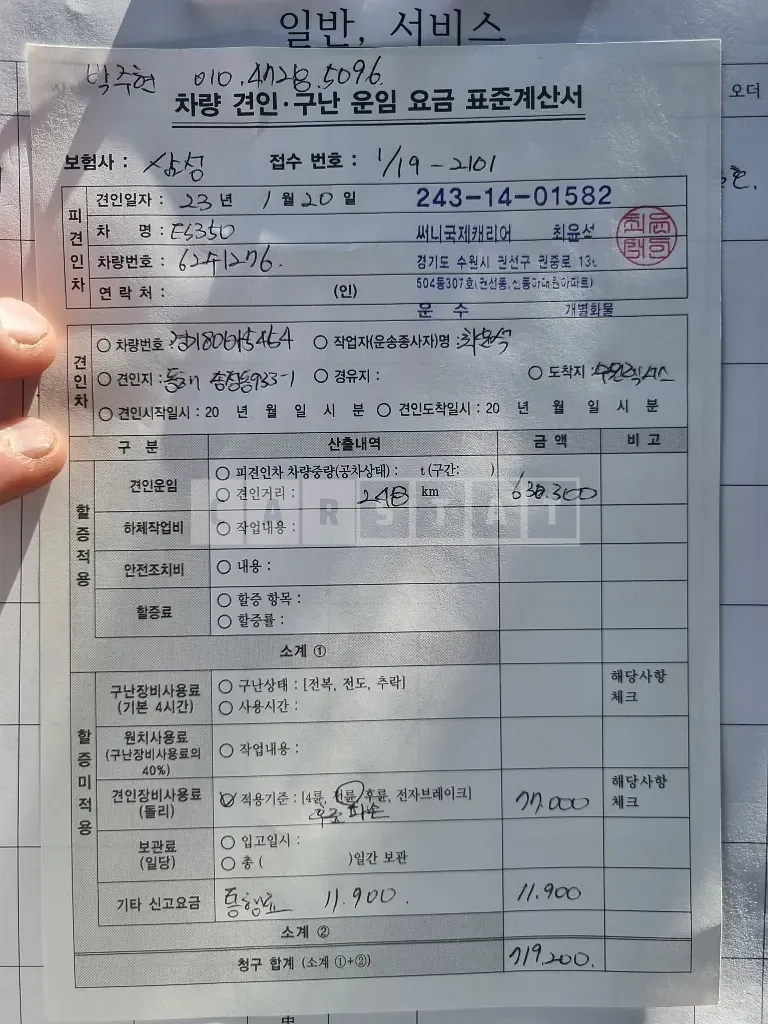 일반, 서비스
오더
박주현 010.4728.5096
차량 견인·구난 운임 요금 표준계산서
보험사 : 삼성 접수 번호 : 1/19 - 2101
피견인차
견인일자 : 23 년 1 월 20 일 243-14-01582
차 명 : ES350 써니국제캐리어 최윤석
차량번호 : 경기도 수원시 권선구 권중로
연 락 처 : (인) 504동307호
운 수 개별화물
견인차
차량번호 작업자(운송종사자)명 : 최윤석
견인지 : 동해 송정동933-1 경유지 : 도착지 :
견인시작일시 : 20 년 월 일 시 분 견인도착일시 : 20 년 월 일 시 분
구 분 산출내역 금 액 비 고
할증적용
견인운임 피견인차 차량중량(공차상태) : t (구간: )
견인거리 : 248 km 630.300
CARSTAT
하체작업비 작업내용 :
안전조치비 내용 :
할증료 할증 항목 :
할증률 :
소계 ①
할증미적용
구난장비사용료 (기본 4시간) 구난상태 : [전복, 전도, 추락] 해당사항 체크
사용시간 :
원치사용료 (구난장비사용료의 40%) 작업내용 :
견인장비사용료 (돌리) 적용기준 : [4륜, 전륜, 후륜, 전자브레이크] 77.000 해당사항 체크
파손
보관료 (일당) 입고일시 :
총 ( )일간 보관
기타 신고요금 통행료 11.900. 11.900
소계 ②
청구 합계 (소계 ①+②) 719.200.